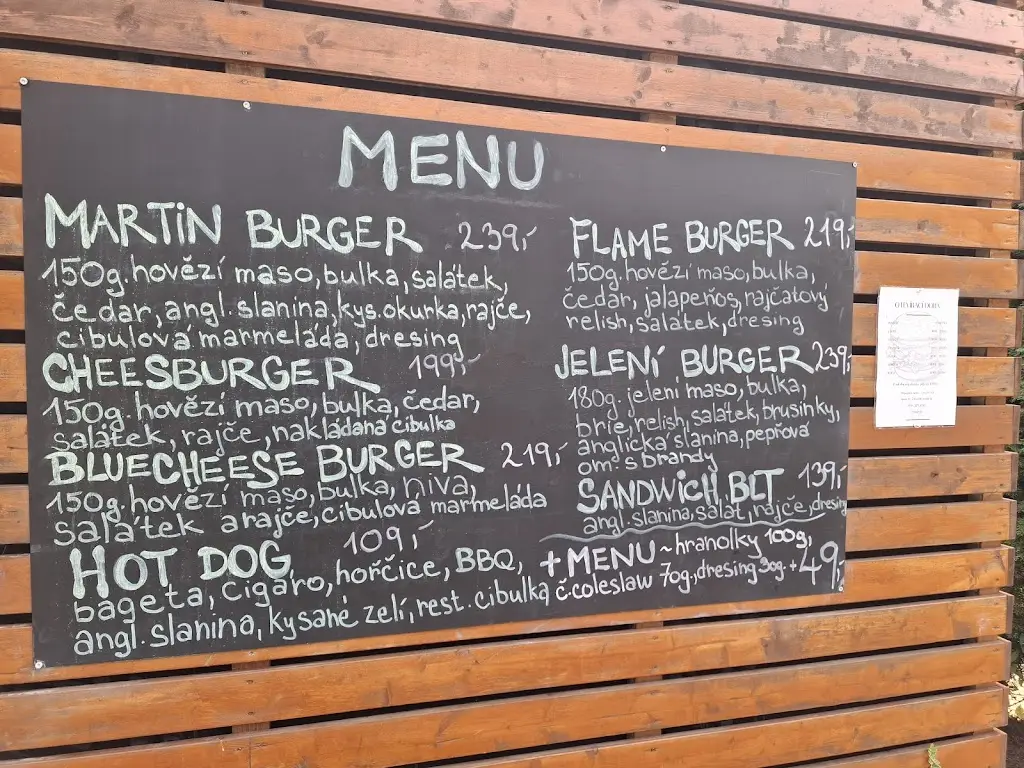 MENU
MARTIN BURGER 239,-
150g.hovězí maso, bulka, salátek,
čedar, angl.slanina, kys.okurka, rajče,
cibulová marmeláda, dresing
CHEESBURGER 199,-
150g. hovězí maso, bulka, čedar,
salátek, rajče, nakládaná cibulka
BLUECHEESE BURGER 219,-
150g. hovězí maso, bulka, niva,
salátek a rajče, cibulová marmeláda
HOT DOG 109,-
bageta, cigáro, hořčice, BBQ,
angl.slanina, kysané zelí, rest. cibulka
FLAME BURGER 219,-
150g. hovězí maso, bulka,
čedar, jalapeños, rajčatový
relish, salátek, dresing
JELENÍ BURGER 239,-
180g. jelení maso, bulka,
brie, relish, salátek, brusinky,
anglická slanina, pepřová
om. s brandy
SANDWICH BLT 139,-
angl.slanina, salát, rajče, dresing
+ MENU ~ hranolky 100g,
č.coleslaw 70g., dresing 30g. + 49,-
OTEVÍRACÍ DOBA